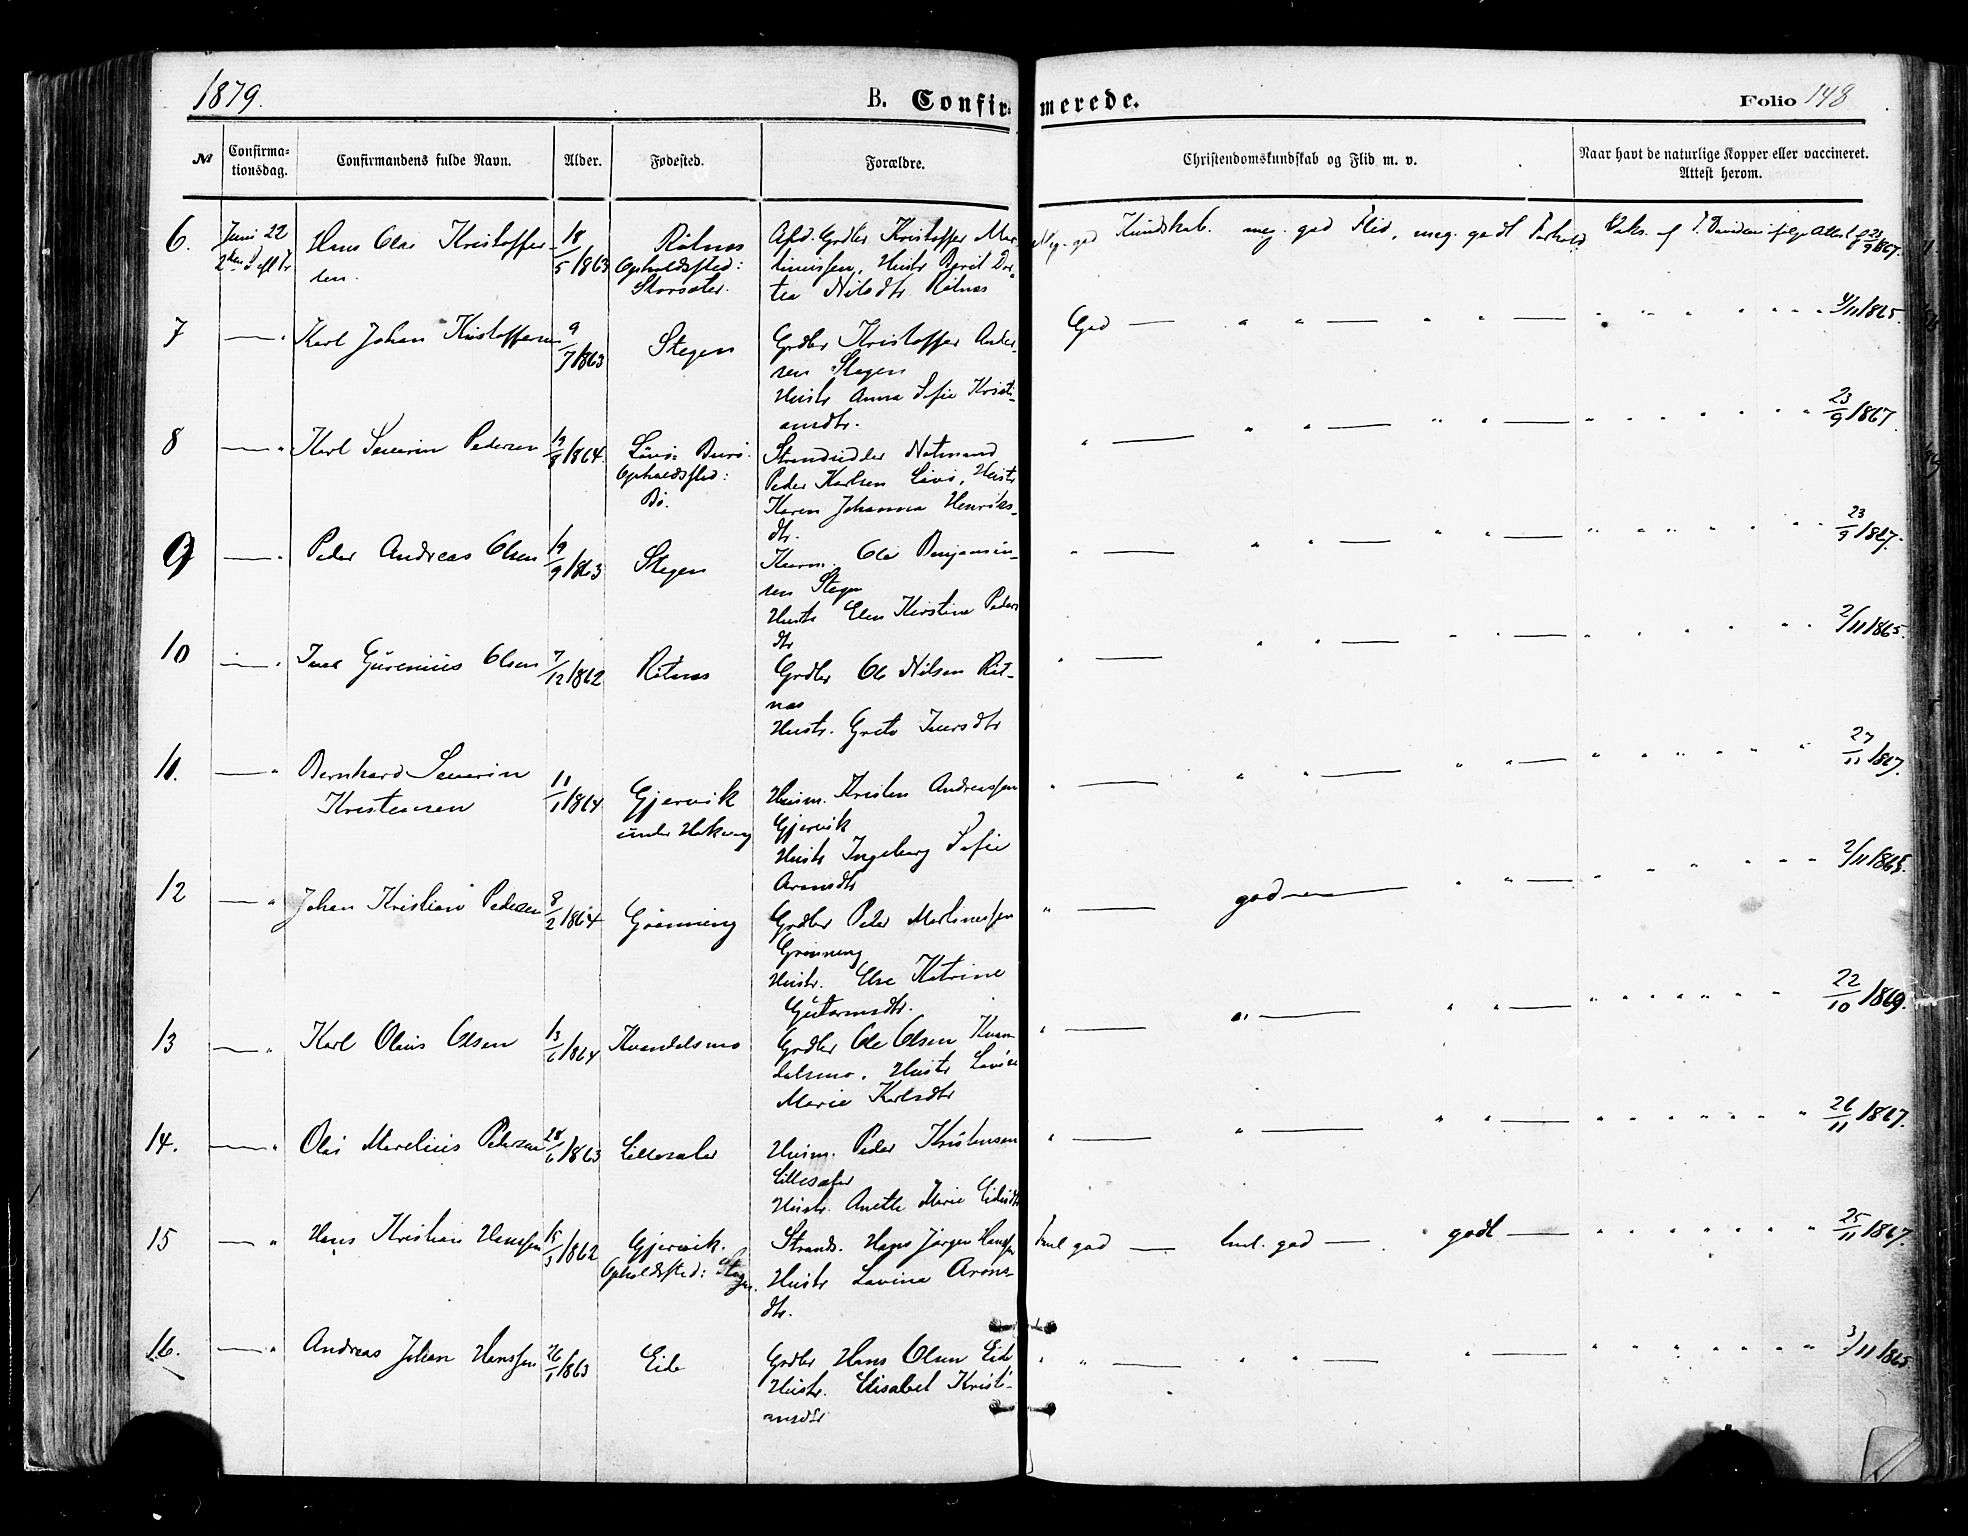 1879.
B. Confir-
merede.
Folio 148
№
Confirma-
tionsdag.
Confirmandens fulde Navn.
Alder.
Fødested.
Forældre.
Christendomskundskab og Flid m. v.
Naar havt de naturlige Kopper eller vaccineret.
Attest herom.
6.
Juni 22
Hans Olai Kristoffer
sen.
18/5 1863
Rölnes
Opholdssted:
Storsæter.
Afd. Grdbr Kristoffer Mar-
tinussen, Hustr Berit Dor-
tea Nilsdtr Rölnes
Meg. god Kundskab. meg. god Flid, meg. godt Forhold
Vaks. af Attest 23/9 1867.
7
— "
Karl Johan Kristoffersen
9/7 1863
Stegen
Grdbr Kristoffer Ander-
sen Stegen
Hustr Anna Sofie Kristi-
ansdtr.
God — " " — " " —
" " " " " " 2/11 1865.
8
— "
Karl Severin Pedersen
19/8 1864
Lövö
Opholdssted:
Bö.
Strandsidder Notmand
Peder Karlsen Lövö, Hustr
Karen Johanna Henriks-
dtr.
" — " " — " " —
" " " " " " 23/9 1867.
9
— "
Peder Andreas Olsen
19/9 1863
Stegen
Ole Benjamin-
sen Stegen
Hustr Elen Kirstine Peders
dtr
" — " " — " " —
" " " " " " 23/9 1867.
10
— "
Iver Gurenius Olsen
7/12 1862
Rölnes
Grdbr Ole Nilsen Röl-
nes
Hustr. Grete Iversdtr
" — " " — " " —
" " " " " " 2/11 1865.
11.
— "
Bernhard Severin
Kristensen
11/1 1864
Gjervik
under
Husm. Kristen Andreassen
Gjervik
Hustr Ingeborg Sofie
Aronsdtr
" — " " — " " —
" " " " " " 27/11 1867.
12
— "
Johan Kristian Pedersen
8/2 1864
Grönning
Grdbr Peder Martinussen
Grönning
Hustr. Else Katrine
Gutormsdtr.
" — god — " " —
" " " " " " 2/11 1865.
13
— "
Karl Olaus Olsen
13/6 1864
Kvandalsmo
Grdbr Ole Olsen Kvan-
dalsmo, Hustr Lovise
Marie Karlsdtr
" — " — " " —
" " " " " " 22/10 1869.
14.
— "
Olai Marelius Pedersen
28/6 1863
Lillesæter
Husm. Peder Kristensen
Lillesæter
Hustr. Anette Marie
" — " — " " —
" " " " " " 26/11 1867.
15
— "
Hans Kristian Hanssen
15/3 1862
Gjervik.
Opholdssted: Stegen.
Strands. Hans Jörgen Hanssen
Hustr Lovina Arons-
dtr.
tml god — tml. god — godt —
" " " " " " 25/11 1867.
16.
— "
Andreas Johan Hanssen
26/1 1863
Eide
Grdbr Hans Olsen Eide
Hustr. Elisabet Kristi-
ansdtr
" " — " " — " —
" " " " " " 3/11 1865